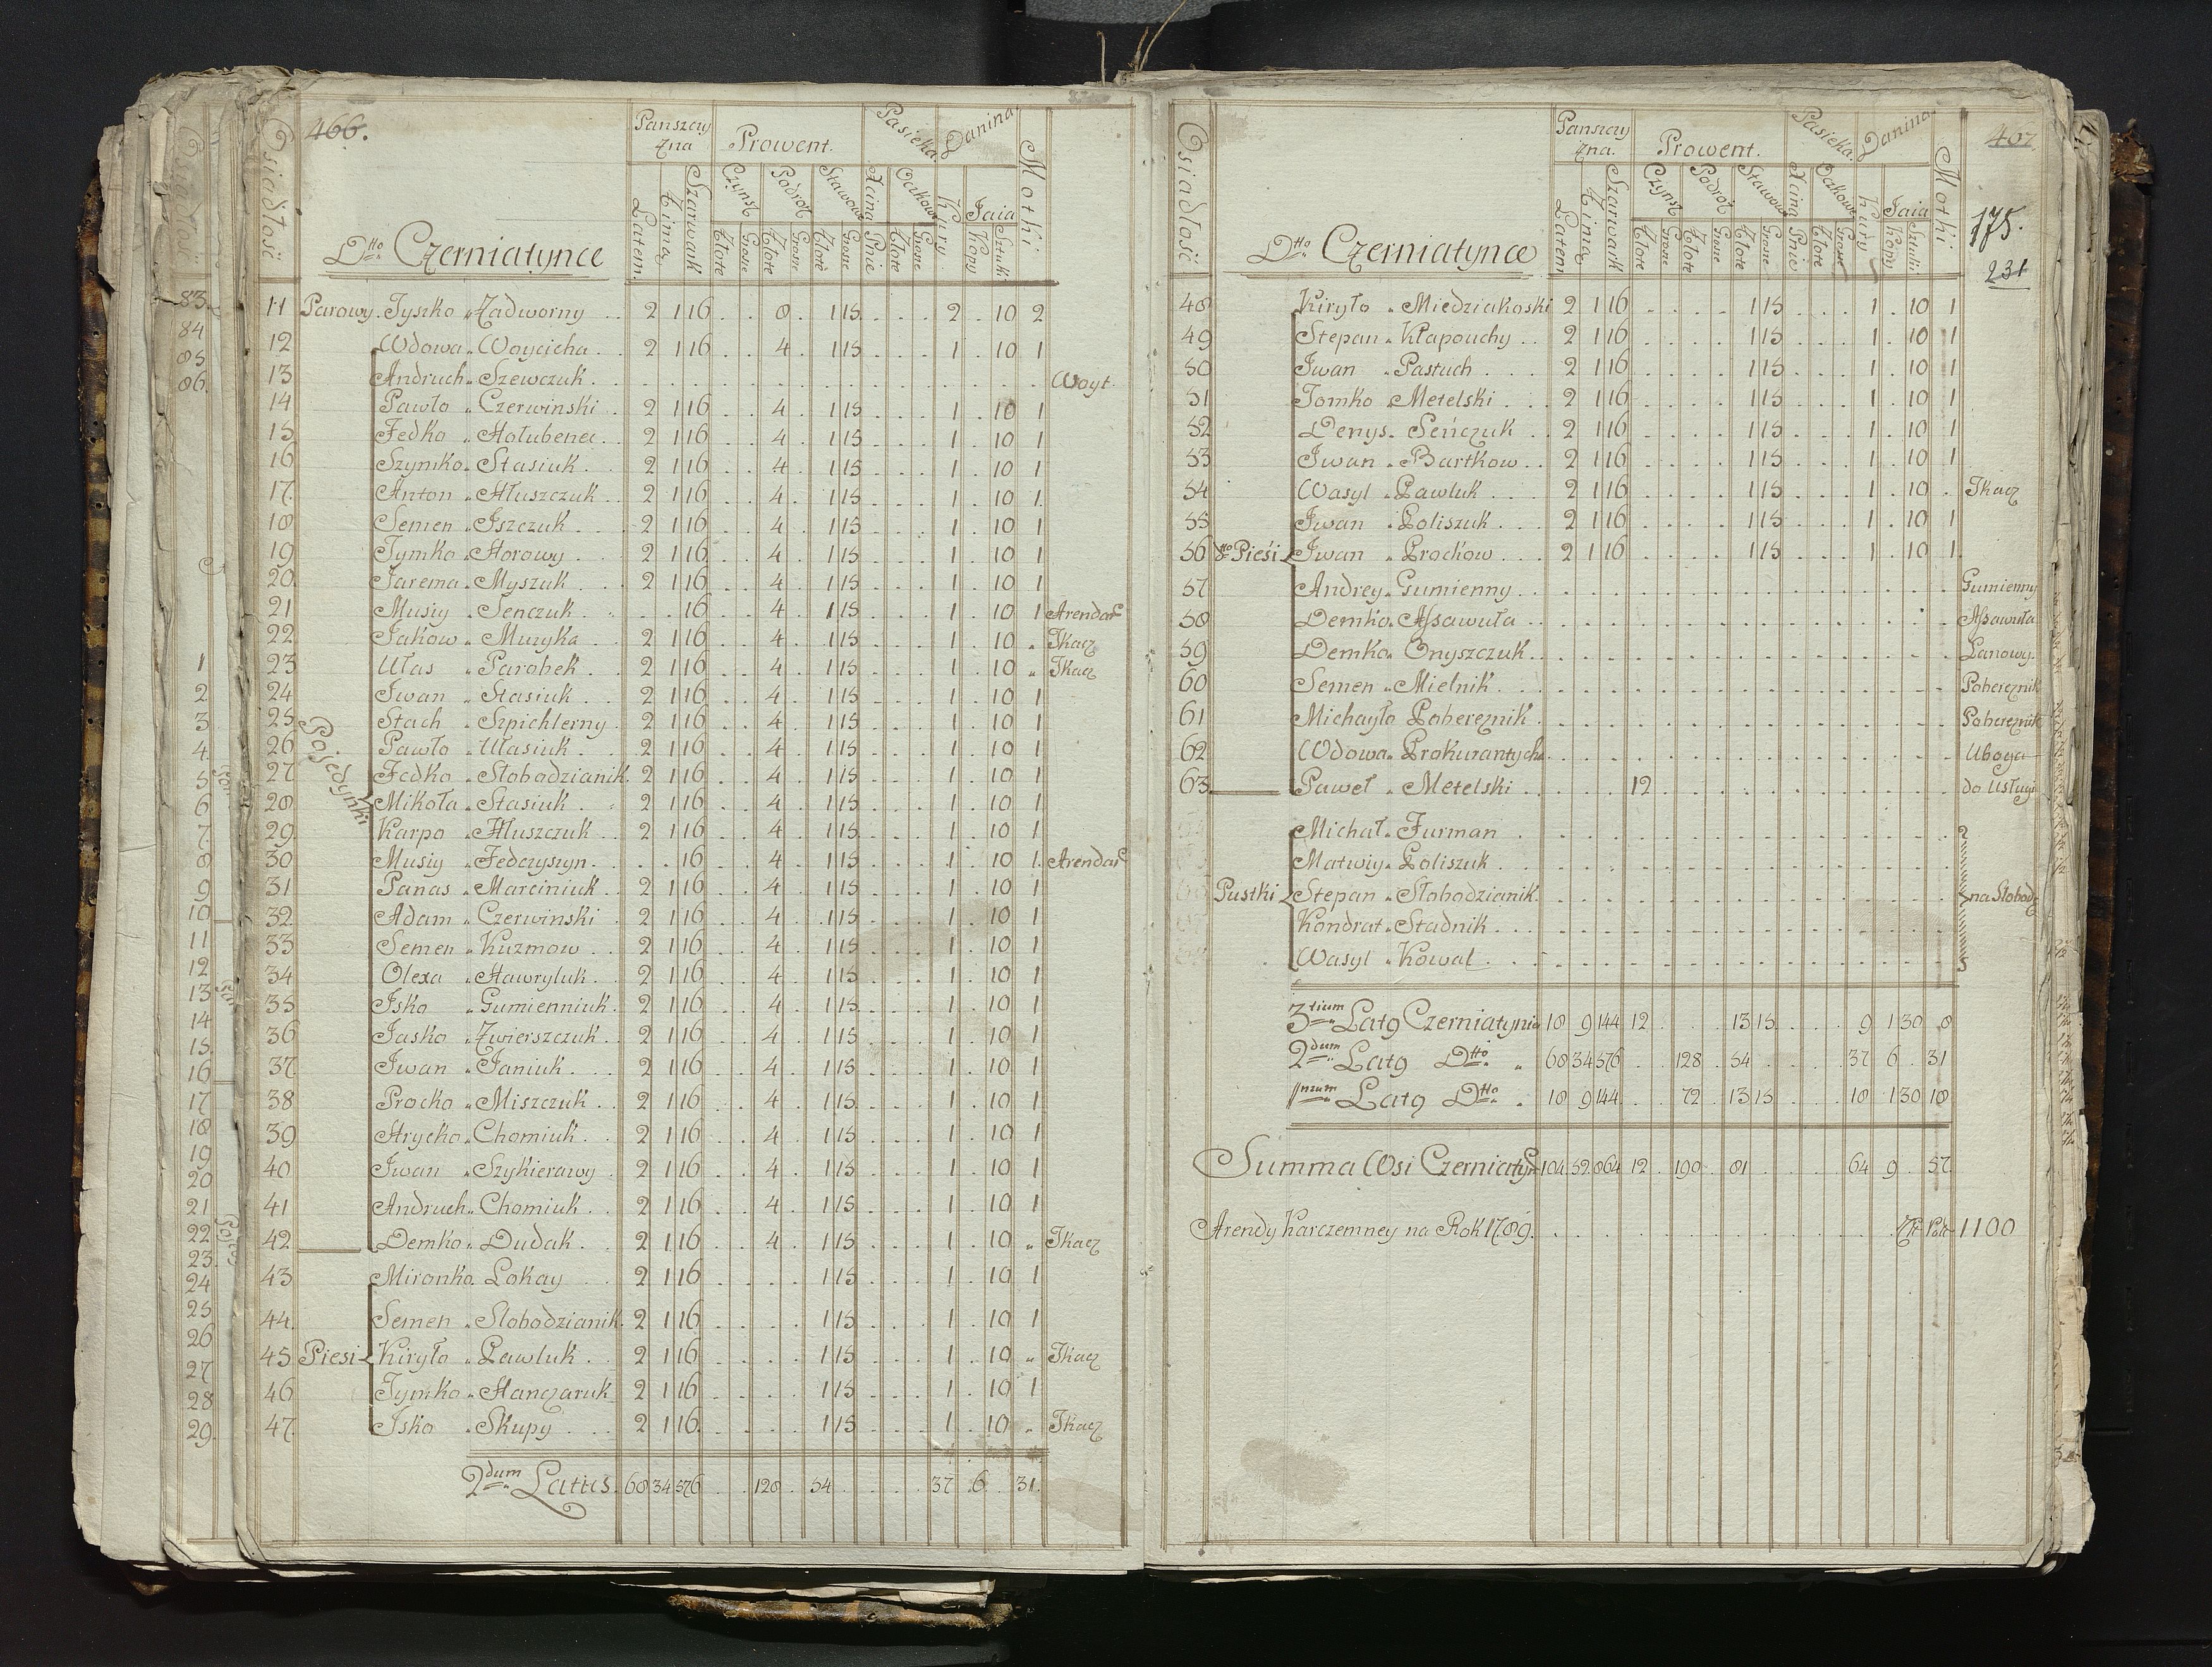 466.
Osiadłość Panszczyzna Prowent. Pasieka. Danina Motki
Latem Zimą Szarwark Czynsz Podróż Stawowe Xcina Oczkowe Kury Jaia
Złote Grosze Złote Grosze Złote Grosze Pnie Złote Grosze Kopy Sztuki
Dtto Czerniatynce
11 Parowy Tyszko Zadworny 2 1 16 8 1 15 2 10 2
12 Wdowa Woycicha 2 1 16 4 1 15 1 10 1
13 Andruch Szewczuk Woyt
14 Pawło Czerwinski 2 1 16 4 1 15 1 10 1
15 Fedko Hołubenec 2 1 16 4 1 15 1 10 1
16 Szymko Stasiuk 2 1 16 4 1 15 1 10 1
17 Anton Hłuszczuk 2 1 16 4 1 15 1 10 1
18 Semen Iszczuk 2 1 16 4 1 15 1 10 1
19 Tymko Horowy 2 1 16 4 1 15 1 10 1
20 Jarema Myszuk 2 1 16 4 1 15 1 10 1
21 Musiy Senczuk 16 4 1 15 1 10 1 Arendarz
22 Jakow Muzyka 2 1 16 4 1 15 1 10 „ Tkacz
23 Ułas Parobek 2 1 16 4 1 15 1 10 „ Tkacz
24 Iwan Stasiuk 2 1 16 4 1 15 1 10 1
25 Stach Szpichlerny 2 1 16 4 1 15 1 10 1
26 Pojedynki Pawło Ułasiuk 2 1 16 4 1 15 1 10 1
27 Fedko Słobodzianik 2 1 16 4 1 15 1 10 1
28 Mikoła Stasiuk 2 1 16 4 1 15 1 10 1
29 Karpo Hłuszczuk 2 1 16 4 1 15 1 10 1
30 Musiy Fedczyszyn 16 4 1 15 1 10 1 Arendarz
31 Panas Marciniuk 2 1 16 4 1 15 1 10 1
32 Adam Czerwinski 2 1 16 4 1 15 1 10 1
33 Semen Kuzmow 2 1 16 4 1 15 1 10 1
34 Olexa Hawryluk 2 1 16 4 1 15 1 10 1
35 Isko Gumienniuk 2 1 16 4 1 15 1 10 1
36 Jasko Zwierszczuk 2 1 16 4 1 15 1 10 1
37 Iwan Janiuk 2 1 16 4 1 15 1 10 1
38 Procko Miszczuk 2 1 16 4 1 15 1 10 1
39 Hrycko Chomiuk 2 1 16 4 1 15 1 10 1
40 Iwan Szykierawy 2 1 16 4 1 15 1 10 1
41 Andruch Chomiuk 2 1 16 4 1 15 1 10 1
42 Demko Dudak 2 1 16 4 1 15 1 10 „ Tkacz
43 Mironko Lokay 2 1 16 1 15 1 10 1
44 Semen Slobodzianik 2 1 16 1 15 1 10 1
45 Piesi Kiryło Pawluk 2 1 16 1 15 1 10 „ Tkacz
46 Tymko Hanczaruk 2 1 16 1 15 1 10 1
47 Isko Skupy 2 1 16 1 15 1 10 „ Tkacz
2dum Latus 68 34 576 128 54 37 6 31
467
175.
231
Osiadłość Panszczyzna. Prowent. Pasieka. Danina Motki
Latem Zimą Szarwark Czynsz Podróż Stawowe Xcina Oczkowe Kury Jaia
Złote Grosze Złote Grosze Złote Grosze Pnie Złote Grosze Kopy Sztuki
Dtto Czerniatynce
48 Kiryło Miedziakoski 2 1 16 1 15 1 10 1
49 Stepan Kłapouchy 2 1 16 1 15 1 10 1
50 Iwan Pastuch 2 1 16 1 15 1 10 1
51 Tomko Metelski 2 1 16 1 15 1 10 1
52 Denys Seńczuk 2 1 16 1 15 1 10 1
53 Iwan Bartkow 2 1 16 1 15 1 10 1
54 Wasyl Pawluk 2 1 16 1 15 1 10 Tkacz
55 Iwan Poliszuk 2 1 16 1 15 1 10 1
56 dtto Pieśi Iwan Prockow 2 1 16 1 15 1 10 1
57 Andrey Gumienny Gumienny
58 Demko Assawuła Assawuła
59 Demko Onyszczuk Łanowy
60 Semen Mielnik Pobereznik
61 Michayło Pobereznik Pobereznik
62 Wdowa Prokurantycha Uboga
63 Paweł Metelski 12 do Usługi
Michał Furman
Matwiy Poliszuk
Pustki Stepan Słobodzianik na Słobodę
Kondrat Stadnik
Wasyl Kowal
3tium Latg Czerniatynia 18 9 144 12 13 15 9 1 30 8
2dum Latg Dtto 68 34 576 128 54 37 6 31
1mum Latg Dtto 18 9 144 72 13 15 18 1 30 18
Summa Wsi Czerniatyn 104 52 864 12 190 81 64 9 57
Arendy Karczemney na Rok 1789 Zł Pol 1100